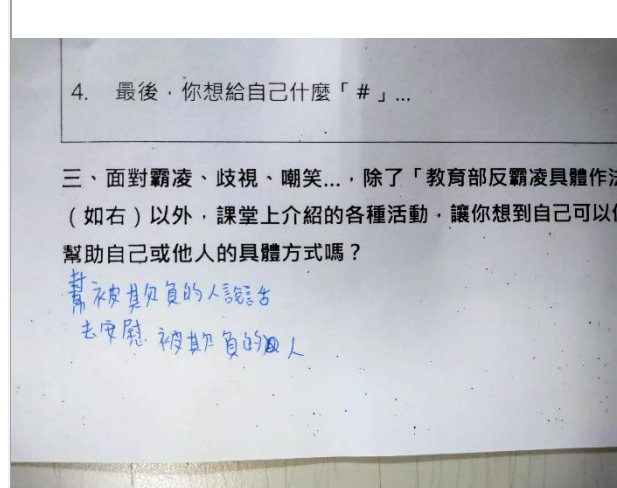 4. 最後，你想給自己什麼「#」...
三、面對霸凌、歧視、嘲笑...，除了「教育部反霸凌具體作法
（如右）以外，課堂上介紹的各種活動，讓你想到自己可以
幫助自己或他人的具體方式嗎？
幫被欺負的人說話
去安慰被欺負的人